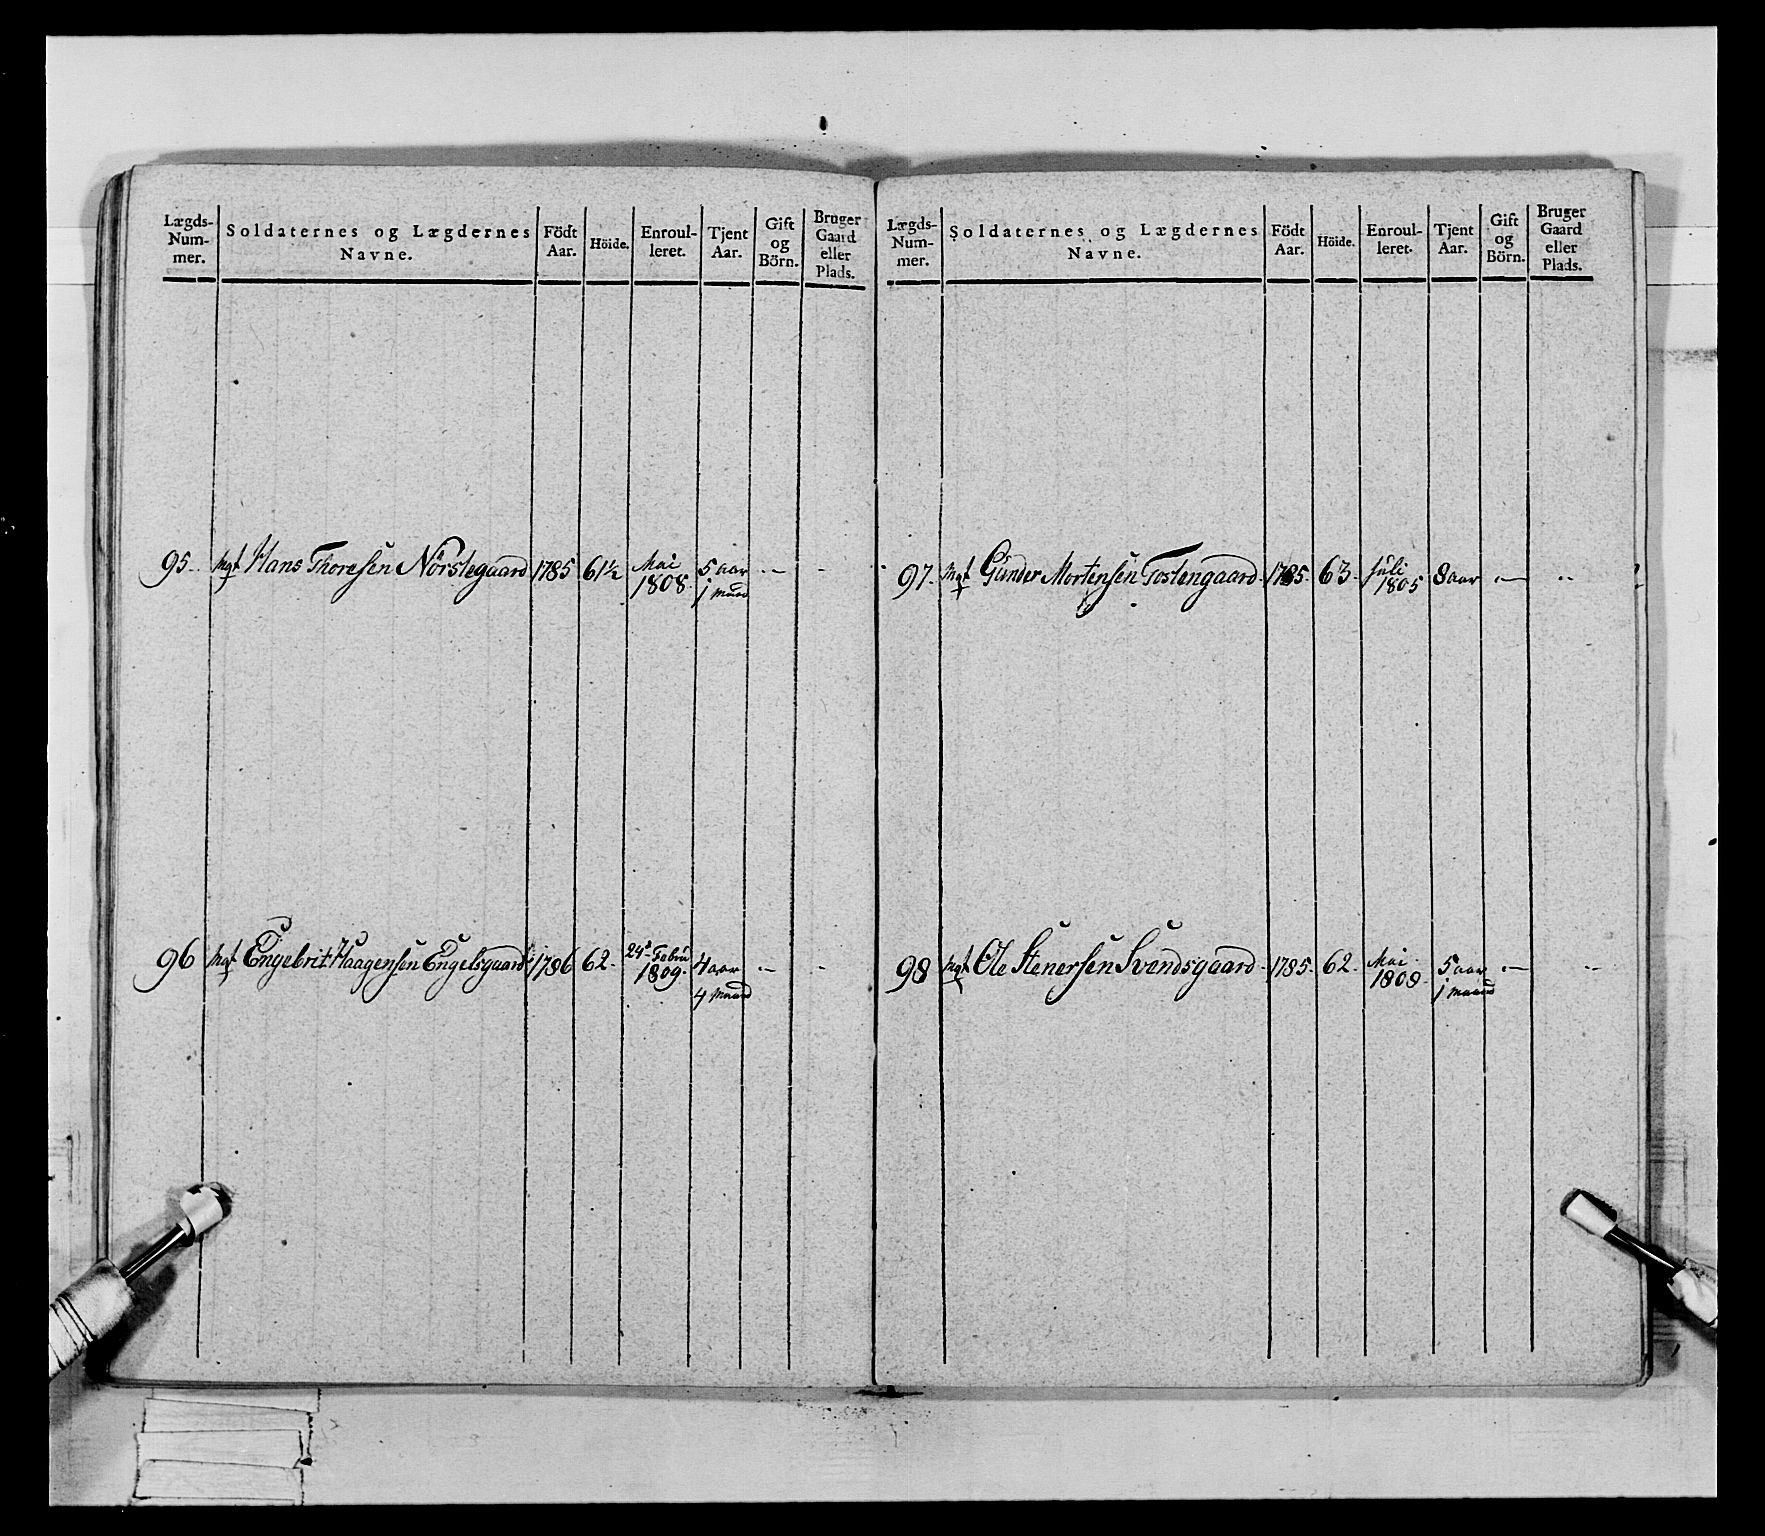 Lægds-Num-mer.
Soldaternes og Lægdernes Navne.
Födt Aar.
Höide.
Enroul-leret.
Tjent Aar.
Gift og Börn.
Bruger Gaard eller Plads.
95. Mgt Hans Thoresen Nörstegaard 1785 61½ Mai 1808. 5 aar 1 maaned
96 Mgt Engebrit Haagensen Engelsgaard 1786 62. 24de Febru 1809. 4 aar 4 Maaned
Lægds-Num-mer.
Soldaternes og Lægdernes Navne.
Födt Aar.
Höide.
Enroul-leret.
Tjent Aar.
Gift og Börn.
Bruger Gaard eller Plads.
97. Mgt Gunder Mortensen Tostengaard 1785. 63. Juli 1805 8 aar
98 Mgt Ole Stenersen Svendsgaard 1785. 62. Mai 1808. 5 aar 1 maaned